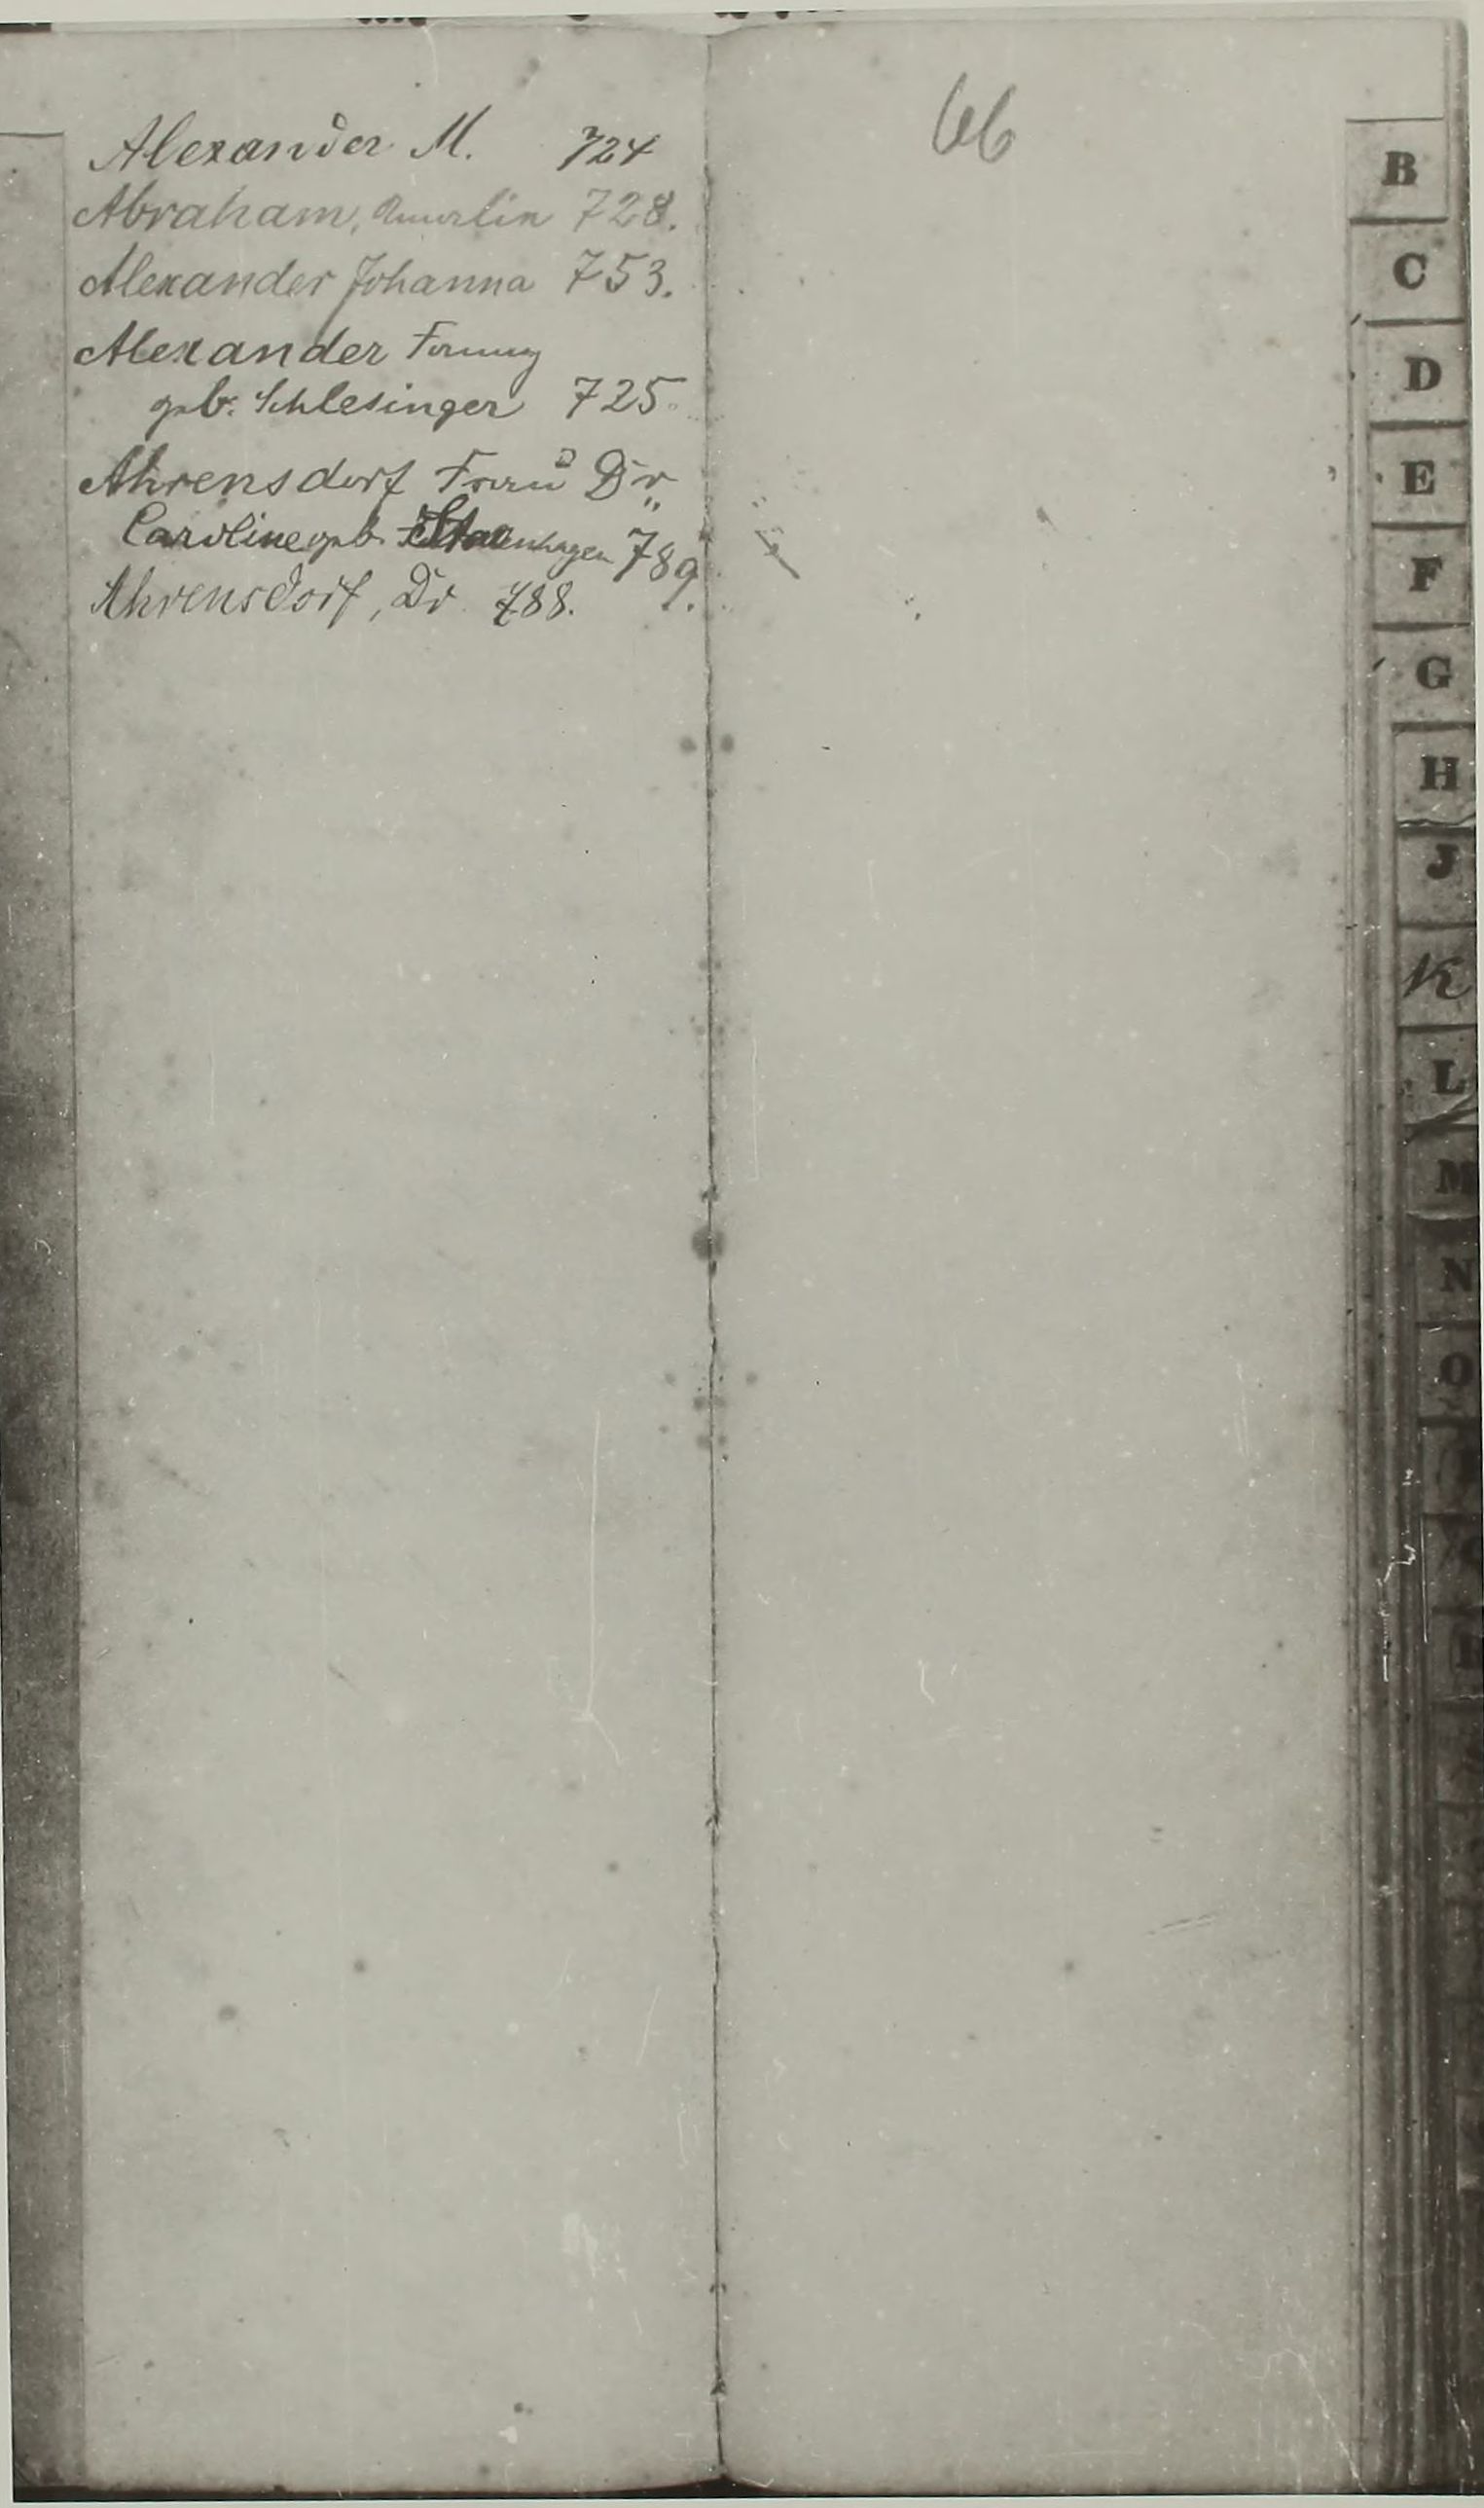 Alexander M. 724
Abraham, 728.
Alexander Johanna 753.
Alexander Fanny
geb. Schlesinger 725.
Ahrensdorf Frau Dr
Caroline geb. Stavenhagen 789.
Ahrensdorf, Dr 788.
66
B
C
D
E
F
G
H
J
K
L
M
N
O